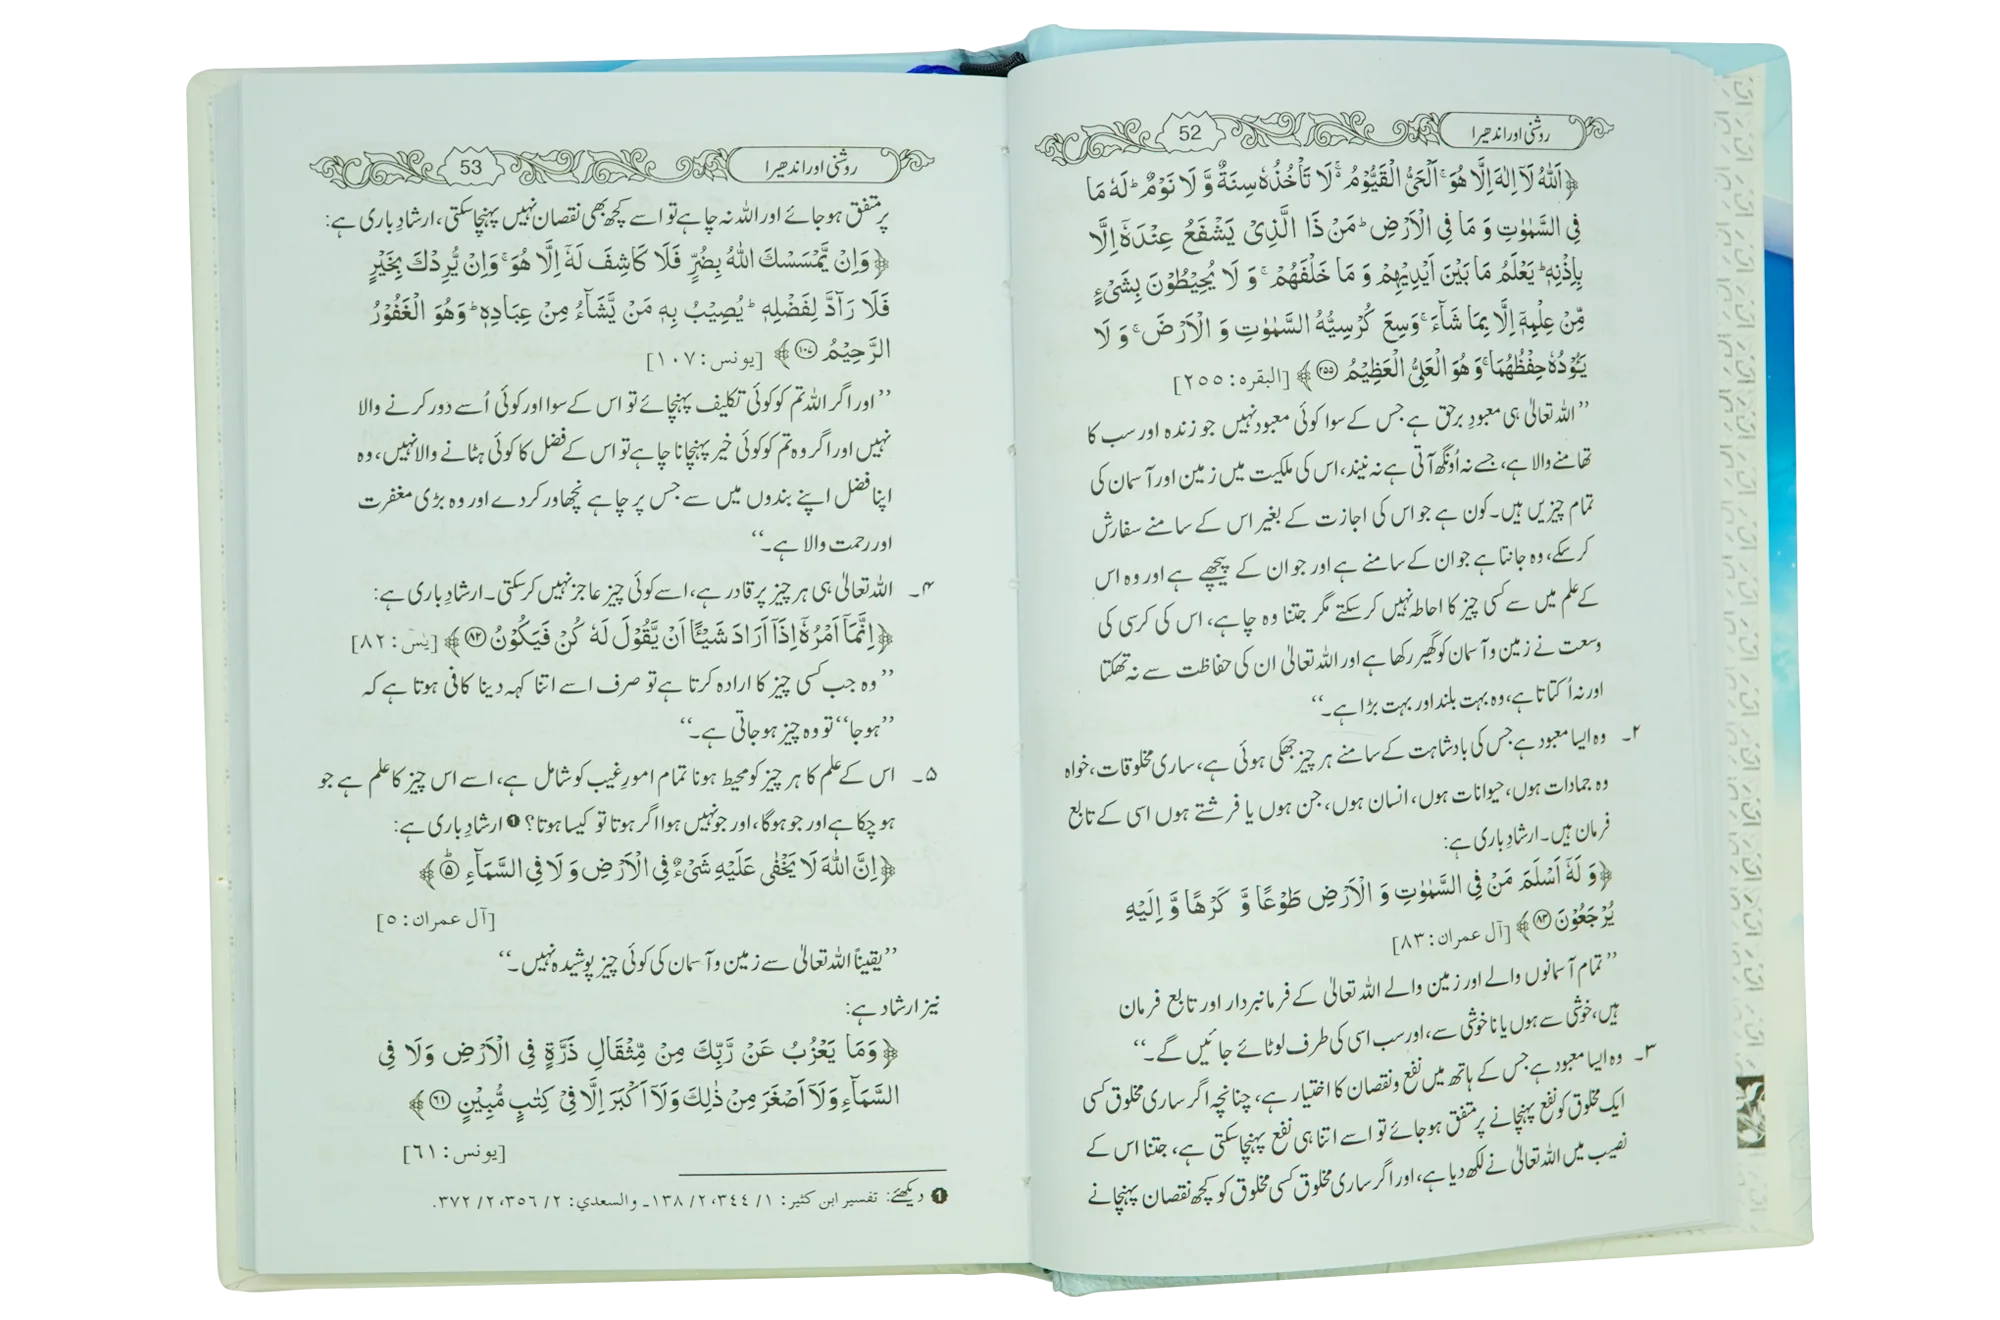 روشنی اور اندھیرا
52
﴿اَللّٰهُ لَاۤ اِلٰهَ اِلَّا هُوَ ۚ اَلْحَیُّ الْقَیُّوْمُ ۚ۬ لَا تَاْخُذُهٗ سِنَةٌ وَّ لَا نَوْمٌ ؕ لَهٗ مَا
فِی السَّمٰوٰتِ وَ مَا فِی الْاَرْضِ ؕ مَنْ ذَا الَّذِیْ یَشْفَعُ عِنْدَهٗۤ اِلَّا
بِاِذْنِهٖ ؕ یَعْلَمُ مَا بَیْنَ اَیْدِیْهِمْ وَ مَا خَلْفَهُمْ ۚ وَ لَا یُحِیْطُوْنَ بِشَیْءٍ
مِّنْ عِلْمِهٖۤ اِلَّا بِمَا شَآءَ ۚ وَسِعَ كُرْسِیُّهُ السَّمٰوٰتِ وَ الْاَرْضَ ۚ وَ لَا
یَـُٔوْدُهٗ حِفْظُهُمَا ۚ وَ هُوَ الْعَلِیُّ الْعَظِیْمُ ۝۲۵۵﴾ [البقره: ۲۵۵]
’’اللہ تعالیٰ ہی معبودِ برحق ہے جس کے سوا کوئی معبود نہیں جو زندہ اور سب کا
تھامنے والا ہے، جسے نہ اُونگھ آتی ہے نہ نیند، اس کی ملکیت میں زمین اور آسمان کی
تمام چیزیں ہیں۔ کون ہے جو اس کی اجازت کے بغیر اس کے سامنے سفارش
کرسکے، وہ جانتا ہے جو ان کے سامنے ہے اور جو ان کے پیچھے ہے اور وہ اس
کے علم میں سے کسی چیز کا احاطہ نہیں کرسکتے مگر جتنا وہ چاہے، اس کی کرسی کی
وسعت نے زمین و آسمان کو گھیر رکھا ہے اور اللہ تعالیٰ ان کی حفاظت سے نہ تھکتا
اور نہ اُکتاتا ہے، وہ بہت بلند اور بہت بڑا ہے۔‘‘
۲۔ وہ ایسا معبود ہے جس کی بادشاہت کے سامنے ہر چیز جھکی ہوئی ہے، ساری مخلوقات، خواہ
وہ جمادات ہوں، حیوانات ہوں، انسان ہوں، جن ہوں یا فرشتے ہوں اسی کے تابع
فرمان ہیں۔ ارشادِ باری ہے:
﴿وَ لَهٗۤ اَسْلَمَ مَنْ فِی السَّمٰوٰتِ وَ الْاَرْضِ طَوْعًا وَّ كَرْهًا وَّ اِلَیْهِ
یُرْجَعُوْنَ ۝۸۳﴾ [آل عمران: ۸۳]
’’تمام آسمانوں والے اور زمین والے اللہ تعالیٰ کے فرمانبردار اور تابع فرمان
ہیں، خوشی سے ہوں یا ناخوشی سے، اور سب اسی کی طرف لوٹائے جائیں گے۔‘‘
۳۔ وہ ایسا معبود ہے جس کے ہاتھ میں نفع و نقصان کا اختیار ہے، چنانچہ اگر ساری مخلوق کسی
ایک مخلوق کو نفع پہنچانے پر متفق ہوجائے تو اسے اتنا ہی نفع پہنچاسکتی ہے، جتنا اس کے
نصیب میں اللہ تعالیٰ نے لکھ دیا ہے، اور اگر ساری مخلوق کسی مخلوق کو کچھ نقصان پہنچانے
روشنی اور اندھیرا
53
پر متفق ہوجائے اور اللہ نہ چاہے تو اسے کچھ بھی نقصان نہیں پہنچاسکتی، ارشادِ باری ہے:
﴿وَ اِنْ یَّمْسَسْكَ اللّٰهُ بِضُرٍّ فَلَا كَاشِفَ لَهٗۤ اِلَّا هُوَ ۚ وَ اِنْ یُّرِدْكَ بِخَیْرٍ
فَلَا رَآدَّ لِفَضْلِهٖ ؕ یُصِیْبُ بِهٖ مَنْ یَّشَآءُ مِنْ عِبَادِهٖ ؕ وَ هُوَ الْغَفُوْرُ
الرَّحِیْمُ ۝۱۰۷﴾ [یونس: ۱۰۷]
’’اور اگر اللہ تم کو کوئی تکلیف پہنچائے تو اس کے سوا اور کوئی اُسے دور کرنے والا
نہیں اور اگر وہ تم کو کوئی خیر پہنچانا چاہے تو اس کے فضل کا کوئی ہٹانے والا نہیں، وہ
اپنا فضل اپنے بندوں میں سے جس پر چاہے نچھاور کردے اور وہ بڑی مغفرت
اور رحمت والا ہے۔‘‘
۴۔ اللہ تعالیٰ ہی ہر چیز پر قادر ہے، اسے کوئی چیز عاجز نہیں کرسکتی۔ ارشادِ باری ہے:
﴿اِنَّمَاۤ اَمْرُهٗۤ اِذَاۤ اَرَادَ شَیْـًٔا اَنْ یَّقُوْلَ لَهٗ كُنْ فَیَكُوْنُ ۝۸۲﴾ [یٰسٓ: ۸۲]
’’وہ جب کسی چیز کا ارادہ کرتا ہے تو صرف اسے اتنا کہہ دینا کافی ہوتا ہے کہ
’’ہوجا‘‘ تو وہ چیز ہوجاتی ہے۔‘‘
۵۔ اس کے علم کا ہر چیز کو محیط ہونا تمام امورِ غیب کو شامل ہے، اسے اس چیز کا علم ہے جو
ہوچکا ہے اور جو ہوگا، اور جو نہیں ہوا اگر ہوتا تو کیسا ہوتا؟ ❶ ارشادِ باری ہے:
﴿اِنَّ اللّٰهَ لَا یَخْفٰی عَلَیْهِ شَیْءٌ فِی الْاَرْضِ وَ لَا فِی السَّمَآءِ ؕ۝۵﴾
[آل عمران: ۵]
’’یقیناً اللہ تعالیٰ سے زمین و آسمان کی کوئی چیز پوشیدہ نہیں۔‘‘
نیز ارشاد ہے:
﴿وَ مَا یَعْزُبُ عَنْ رَّبِّكَ مِنْ مِّثْقَالِ ذَرَّةٍ فِی الْاَرْضِ وَ لَا فِی
السَّمَآءِ وَ لَاۤ اَصْغَرَ مِنْ ذٰلِكَ وَ لَاۤ اَكْبَرَ اِلَّا فِیْ كِتٰبٍ مُّبِیْنٍ ۝۶۱﴾
[یونس: ۶۱]
❶ دیکھئے: تفسیر ابن کثیر: ۱/ ۳۴۴، ۲/ ۱۳۸۔ والسعدي: ۲/ ۳۵۶، ۲/ ۳۷۲.